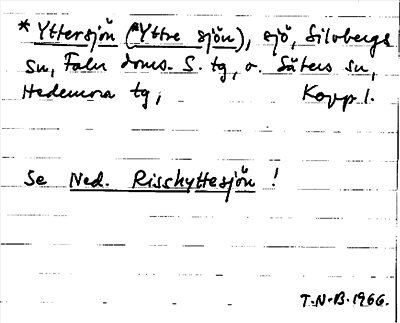 * Yttersjön (*Yttre sjön), sjö, Silvbergs
sn, Falu doms. S. tg, o. Säters sn,
Hedemora tg, Kopp l.
Se Ned. Risshyttesjön !
T.N.B. 1966.